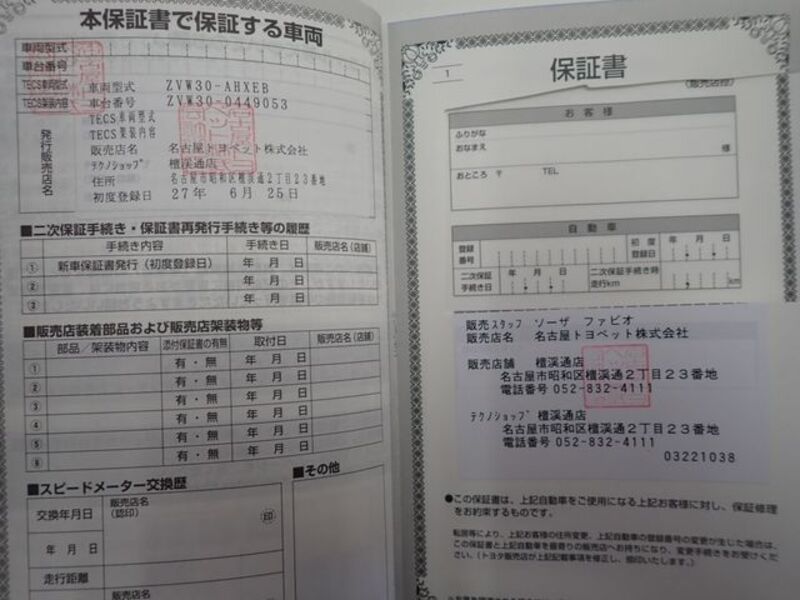 本保証書で保証する車両
車両型式
車台番号
TECS車両型式 車両型式 ZVW30-AHXEB
TECS架装内容 車台番号 ZVW30-0449053
TECS車両型式
TECS架装内容
発行販売店名
販売店名 名古屋トヨペット株式会社
テクノショップ 檀渓通店
住所 名古屋市昭和区檀渓通2丁目23番地
初度登録日 27年 6月 25日
■二次保証手続き・保証書再発行手続き等の履歴
手続き内容 手続き日 販売店名(店舗)
① 新車保証書発行(初度登録日) 年 月 日
② 年 月 日
③ 年 月 日
■販売店装着部品および販売店架装物等
部品/架装物内容 添付保証書の有無 取付日 販売店名(店舗)
① 有・無 年 月 日
② 有・無 年 月 日
③ 有・無 年 月 日
④ 有・無 年 月 日
⑤ 有・無 年 月 日
⑥ 有・無 年 月 日
■スピードメーター交換歴
交換年月日 販売店名(認印) 印
年 月 日
走行距離
販売店名
■その他
1
保証書
(販売店控)
お客様
ふりがな
おなまえ 様
おところ 〒 TEL
自動車
登録番号 初度登録日 年 月 日
二次保証手続き日 年 月 日 二次保証手続き時走行km km
販売スタッフ ソーザ ファビオ
販売店名 名古屋トヨペット株式会社
販売店舗 檀渓通店
名古屋市昭和区檀渓通2丁目23番地
電話番号 052-832-4111
テクノショップ 檀渓通店
名古屋市昭和区檀渓通2丁目23番地
電話番号 052-832-4111
03221038
●この保証書は、上記自動車をご使用になる上記お客様に対し、保証修理
をお約束するものです。
転居等により、上記お客様の住所変更、上記自動車の登録番号の変更が生じた場合は、
この保証書と上記自動車を最寄りの販売店へお持ちになり、変更手続きをお受けくだ
さい。(トヨタ販売店が上記記載事項を修正し、捺印いたします。)